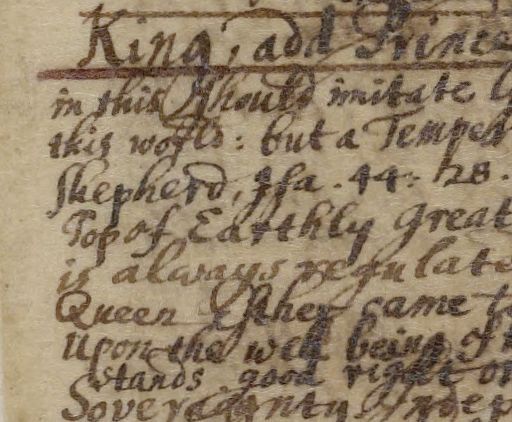 King, add Prince
in this should imitate
this world: but a Temper
Shepherd, Isa. 44: 28.
Top of Earthly Great
is always regulate
Queen Esther came t
Upon the well being of
stands good right or
Sovereignty Indep